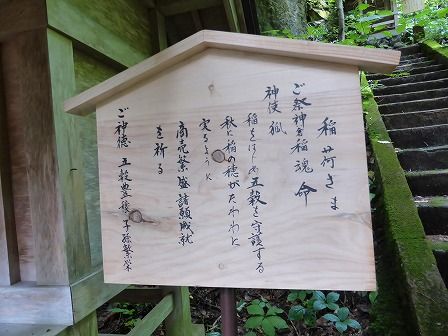 稲荷さま
ご祭神 倉稲魂命
神使 狐
稲をはじめ五穀を守護する
秋に稲の穂がたわわに
実るように
商売繁盛諸願成就
を祈る
ご神徳 五穀豊穣 子孫繁栄